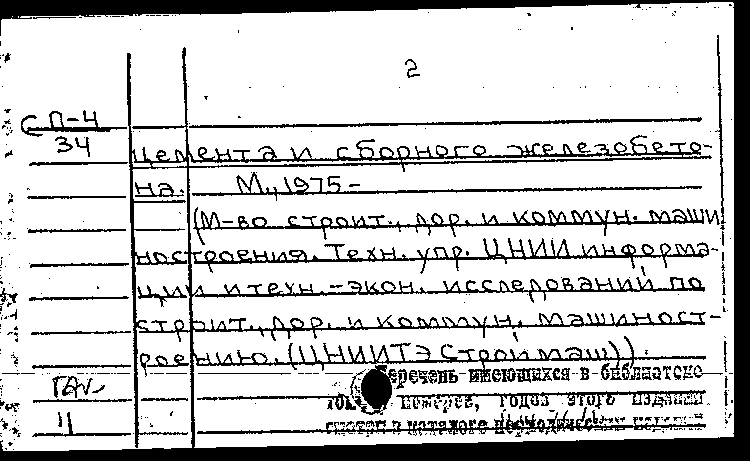 2
СП-4
34
цемента и сборного железобето-
на. М., 1975-
(М-во строит., дор. и коммун. маши
ностроения. Техн. упр. ЦНИИ информа-
ции и техн.-экон. исследований по
строит., дор. и коммун. машиност-
роению. (ЦНИИТЭСтроймаш)).
еречень имеющихся в библиотеке
номеров, годов этого издания
смотри в каталоге периодических
11